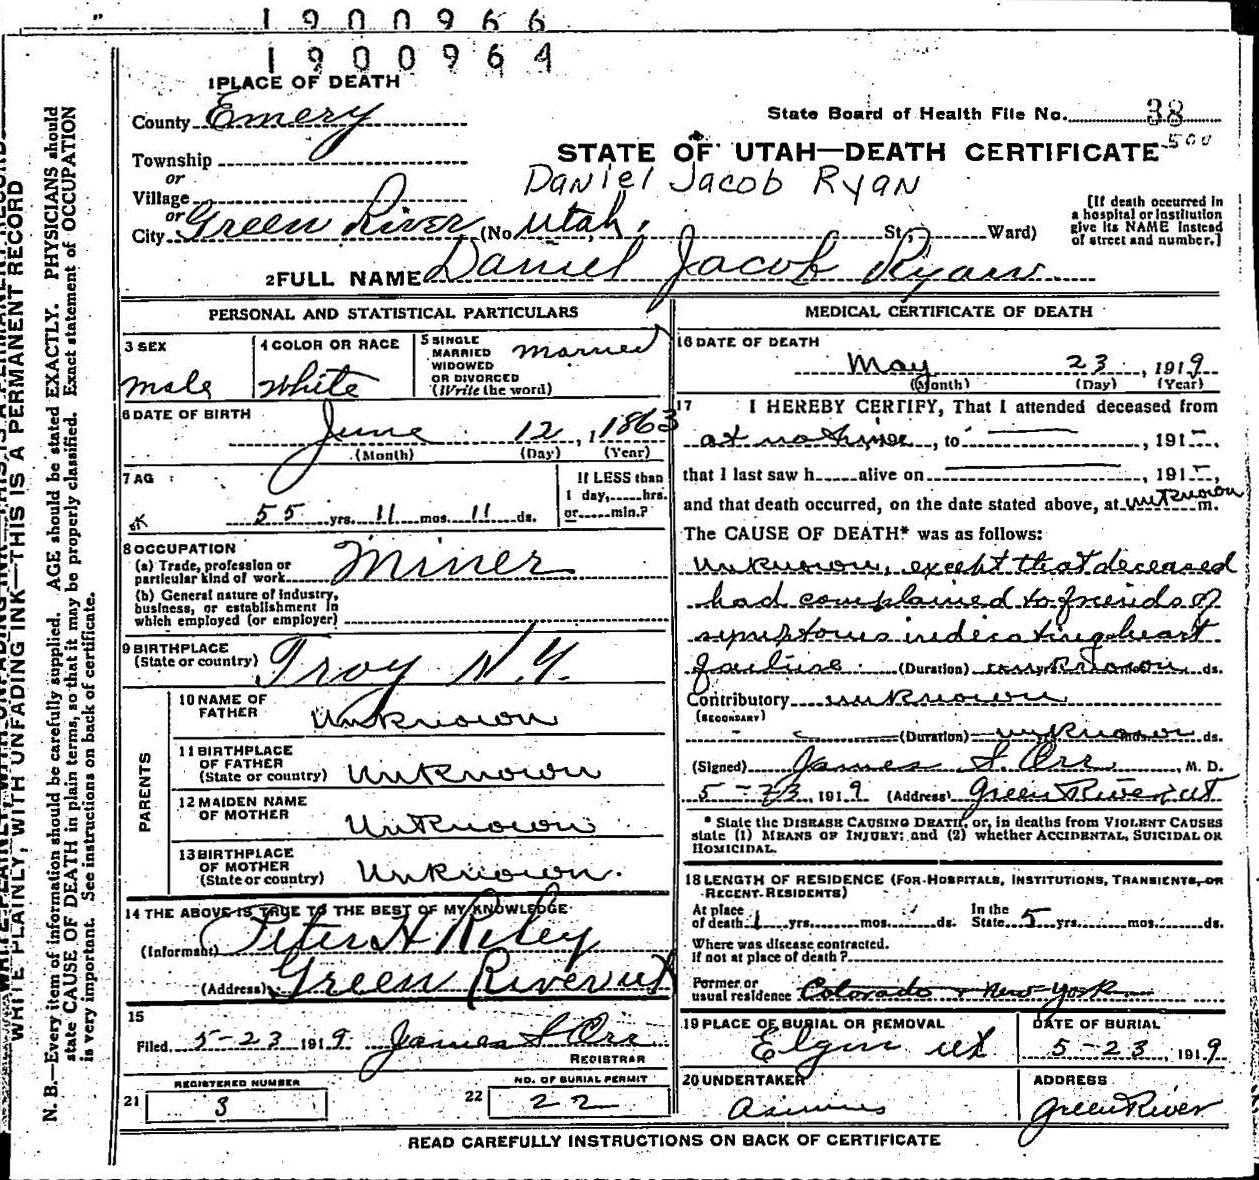 1900966
1900964
1 PLACE OF DEATH
County Emery
State Board of Health File No. 38
500
Township
or
Village
or
City Green River (No. Utah. St. Ward)
STATE OF UTAH—DEATH CERTIFICATE
Daniel Jacob Ryan
[If death occurred in
a hospital or institution
give its NAME instead
of street and number.]
2 FULL NAME Daniel Jacob Ryan
PERSONAL AND STATISTICAL PARTICULARS
3 SEX
male
4 COLOR OR RACE
White
5 SINGLE
MARRIED
WIDOWED
OR DIVORCED
(Write the word)
married
6 DATE OF BIRTH
June 12, 1863
(Month) (Day) (Year)
7 AG
55 yrs. 11 mos. 11 ds.
If LESS than
1 day, hrs.
or min.?
8 OCCUPATION
(a) Trade, profession or
particular kind of work Miner
(b) General nature of industry,
business, or establishment in
which employed (or employer)
9 BIRTHPLACE
(State or country) Troy N.Y.
PARENTS
10 NAME OF
FATHER Unknown
11 BIRTHPLACE
OF FATHER
(State or country) Unknown
12 MAIDEN NAME
OF MOTHER Unknown
13 BIRTHPLACE
OF MOTHER
(State or country) Unknown.
14 THE ABOVE IS TRUE TO THE BEST OF MY KNOWLEDGE
(Informant) Peter H Riley
(Address) Green River ut
15
Filed 5-23 1919 James S Orr
REGISTRAR
REGISTERED NUMBER
21 3
NO. OF BURIAL PERMIT
22 22
MEDICAL CERTIFICATE OF DEATH
16 DATE OF DEATH
May 23, 1919
(Month) (Day) (Year)
17 I HEREBY CERTIFY, That I attended deceased from
at no time, to , 191 ,
that I last saw h alive on , 191 ,
and that death occurred, on the date stated above, at unknown m.
The CAUSE OF DEATH* was as follows:
Unknown, except that deceased
had complained to friends of
symptoms indicating heart
failure. (Duration) unknown ds.
Contributory unknown
(SECONDARY)
(Duration) unknown ds.
(Signed) James S. Orr, M. D.
5-23, 1919 (Address) Green River, ut
* State the DISEASE CAUSING DEATH, or, in deaths from VIOLENT CAUSES
state (1) MEANS OF INJURY; and (2) whether ACCIDENTAL, SUICIDAL OR
HOMICIDAL.
18 LENGTH OF RESIDENCE (FOR HOSPITALS, INSTITUTIONS, TRANSIENTS, OR
RECENT RESIDENTS)
At place
of death 1 yrs. mos. ds. In the
State 5 yrs. mos. ds.
Where was disease contracted.
if not at place of death?
Former or
usual residence Colorado + New York
19 PLACE OF BURIAL OR REMOVAL
Elgin ut
DATE OF BURIAL
5-23, 1919
20 UNDERTAKER
ADDRESS
Green River
READ CAREFULLY INSTRUCTIONS ON BACK OF CERTIFICATE
WRITE PLAINLY, WITH UNFADING INK—THIS IS A PERMANENT RECORD
N. B.—Every item of information should be carefully supplied. AGE should be stated EXACTLY. PHYSICIANS should
state CAUSE OF DEATH in plain terms, so that it may be properly classified. Exact statement of OCCUPATION
is very important. See instructions on back of certificate.